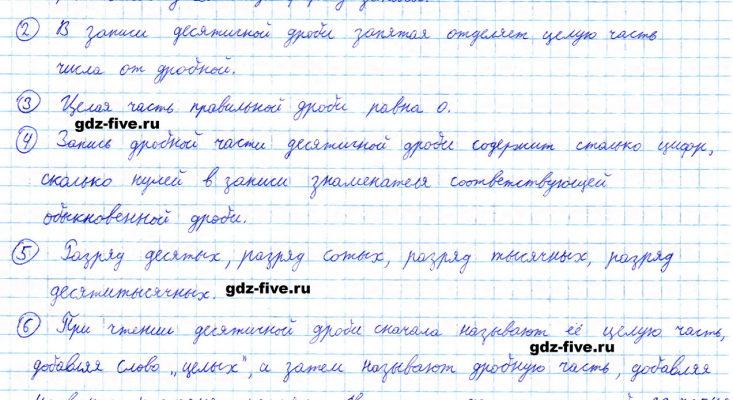 ② В записи десятичной дроби запятая отделяет целую часть
числа от дробной.
③ Целая часть правильной дроби равна 0.
gdz-five.ru
④ Запись дробной части десятичной дроби содержит столько цифр,
сколько нулей в записи знаменателя соответствующей
обыкновенной дроби.
⑤ Разряд десятых, разряд сотых, разряд тысячных, разряд
десятитысячных.
gdz-five.ru
⑥ При чтении десятичной дроби сначала называют её целую часть,
gdz-five.ru
добавляя слово „целых", а затем называют дробную часть, добавляя